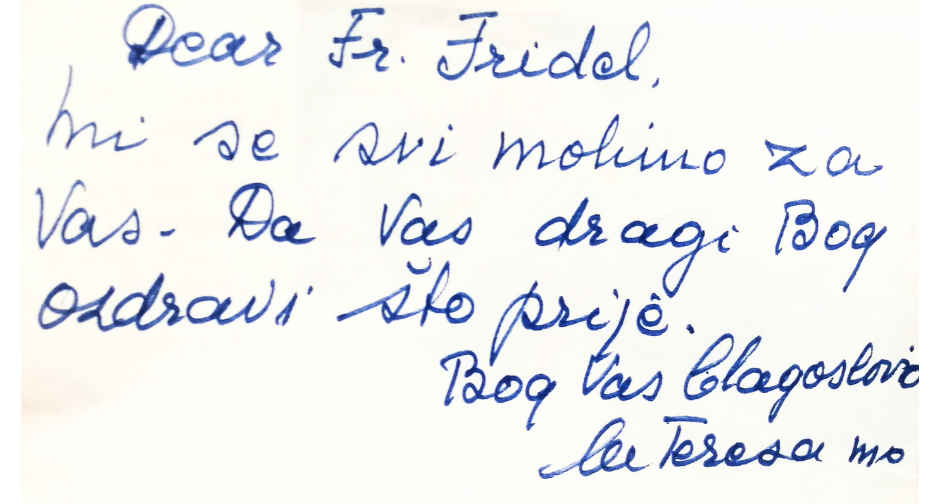 Dear Fr. Fridel,
mi se svi molimo za
Vas - Da Vas dragi Bog
ozdravi što prije.
Bog Vas blagoslovio
lu Teresa mc